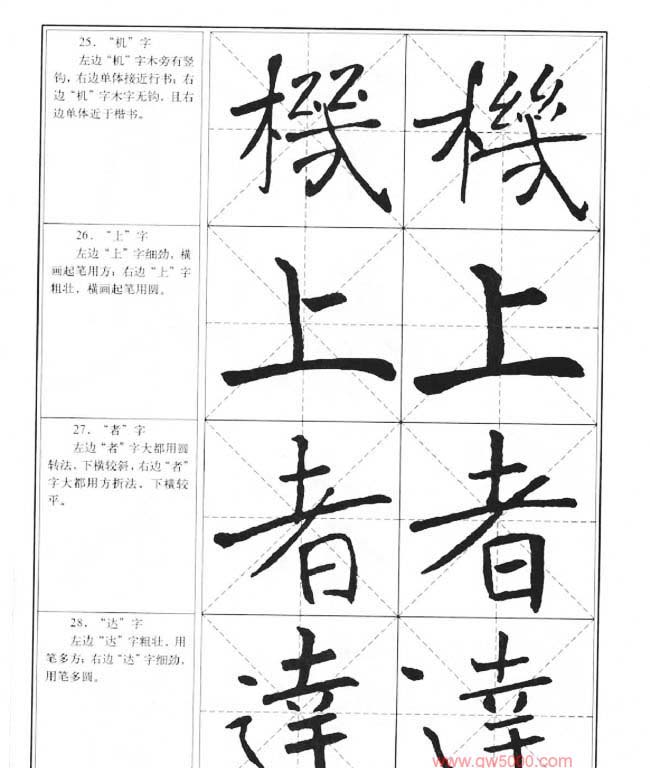 25．“机”字
左边“机”字木旁有竖
钩，右边单体接近行书；右
边“机”字木字无钩，且右
边单体近于楷书。
機 機
26．“上”字
左边“上”字细劲，横
画起笔用方；右边“上”字
粗壮，横画起笔用圆。
上 上
27．“者”字
左边“者”字大都用圆
转法，下横较斜，右边“者”
字大都用方折法，下横较
平。
者 者
28．“达”字
左边“达”字粗壮，用
笔多方；右边“达”字细劲，
用笔多圆。
達 達
www.gw5000.com